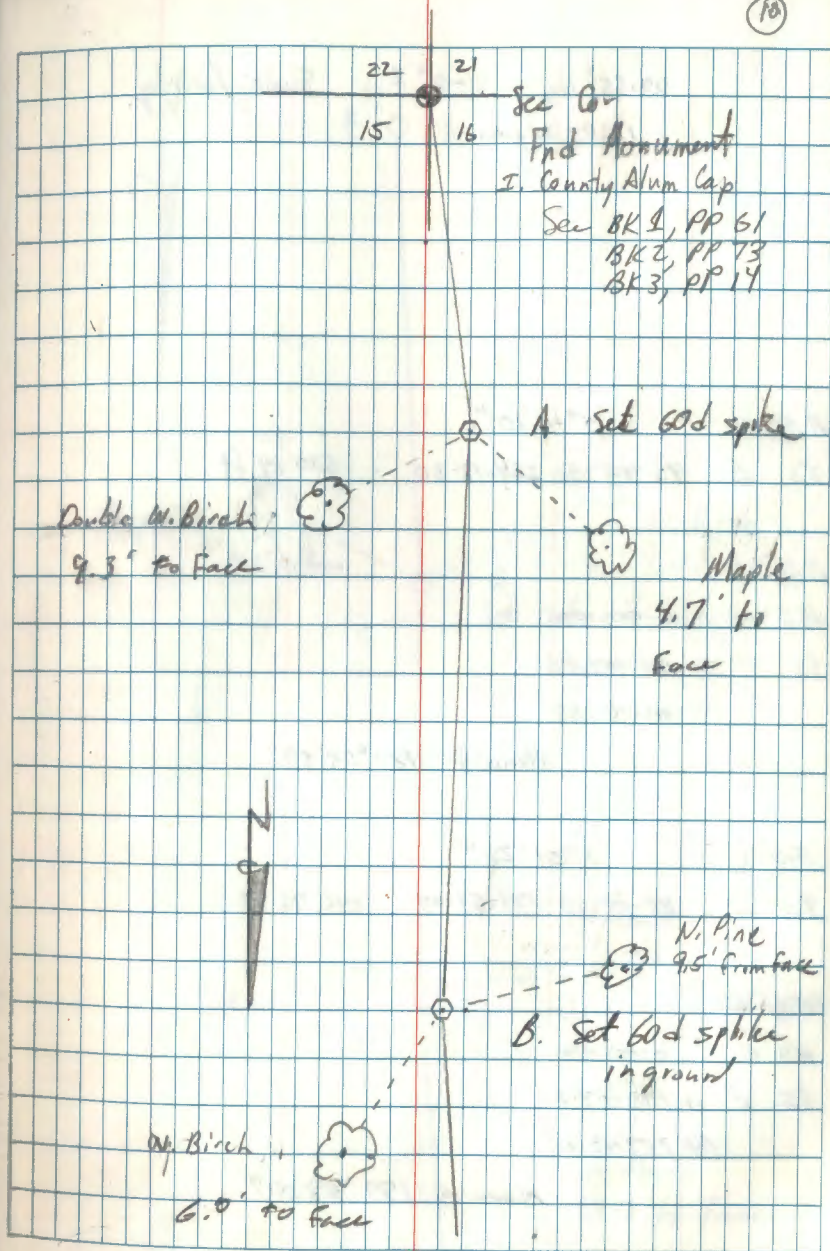 22 21
15 16
Sec Cor
Fnd Monument
I. County Alum Cap
See BK1, PP 61
BK2, PP 73
BK3, PP 14
A. Set 60d spike
Double W. Birch
9.3' to Face
Maple
4.7' to
Face
N
N. Pine
9.5' From Face
B. Set 60d sphike
in ground
W. Birch
6.0' to Face